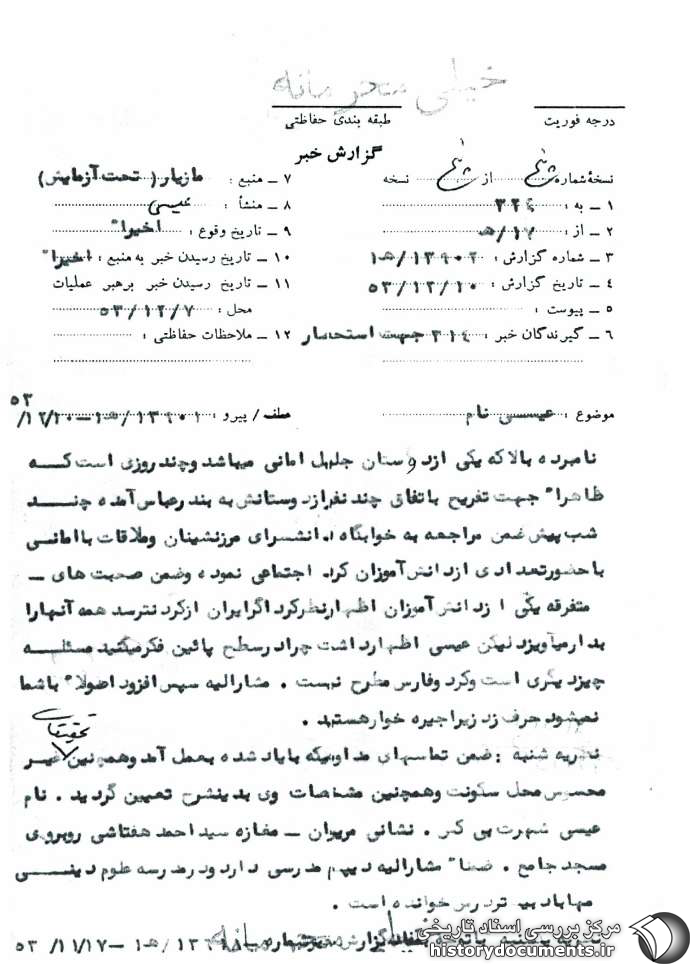 خیلی محرمانه
درجه فوریت
طبقه بندی حفاظتی
گزارش خبر
نسخهٔ شماره از نسخه
۱ ــ به : ۳۲۴
۲ ــ از : ۱۷/ هـ
۳ ــ شماره گزارش : ۱۳۹۰۲/ هـ۱
۴ ــ تاریخ گزارش : ۵۳/۱۲/۱۰
۵ ــ پیوست :
۶ ــ گیرندگان خبر : ۳۱۴ جهت استحضار
۷ ــ منبع : مازیار ( تحت آزمایش )
۸ ــ منشأ : عیسی
۹ ــ تاریخ وقوع : اخیراً
۱۰ ــ تاریخ رسیدن خبر به منبع : اخیراً
۱۱ ــ تاریخ رسیدن خبر برهبر عملیات
محل : ۵۳/۱۲/۷
۱۲ ــ ملاحظات حفاظتی :
موضوع : عیسی نام
عطف / پیرو : ۱۳۹۰۱/ هـ۱ – ۱۲/۱۰/ ۵۳
نامبرده بالا که یکی از دوستان جلیل امانی میباشد و چند روزی است که
ظاهراً جهت تفریح باتفاق چند نفر از دوستانش به بندرعباس آمده چند
شب پیش ضمن مراجعه به خوابگاه دانشسرای مرزنشینان و ملاقات با امانی
با حضور تعدادی از دانش آموزان کرد اجتماعی نموده و ضمن صحبت های ــ
متفرقه یکی از دانش آموزان اظهارنظر کرد اگر ایران از کرد نترسد همه آنها را
بدار میآویزد لیکن عیسی اظهار داشت چرا در سطح پائین فکر میکنید مسئله
چیز دیگری است و کرد و فارس مطرح نیست . مشارالیه سپس افزود اصولاً باشما
نمیشود حرف زد زیرا جیره خوار هستید .
تحقیقات
نظریه شنبه : ضمن تماسهای مداومیکه با یاد شده بعمل آمد و همچنین غیر
محسوس محل سکونت و همچنین مشخصات وی بدینشرح تعیین گردید . نام
عیسی شهرت بی کس . نشانی مریوان ــ مغازه سید احمد هفتاشی روبروی
مسجد جامع . ضمناً مشارالیه دیپلم مدرسی دارد و در مدرسه علوم دینی
مهاباد نیز درس خوانده است .
نظریه یکشنبه گزارش شماره ۱ – ۱۱/۱۷/ ۵۳
خیلی محرمانه
مرکز بررسی اسناد تاریخی
historydocuments.ir